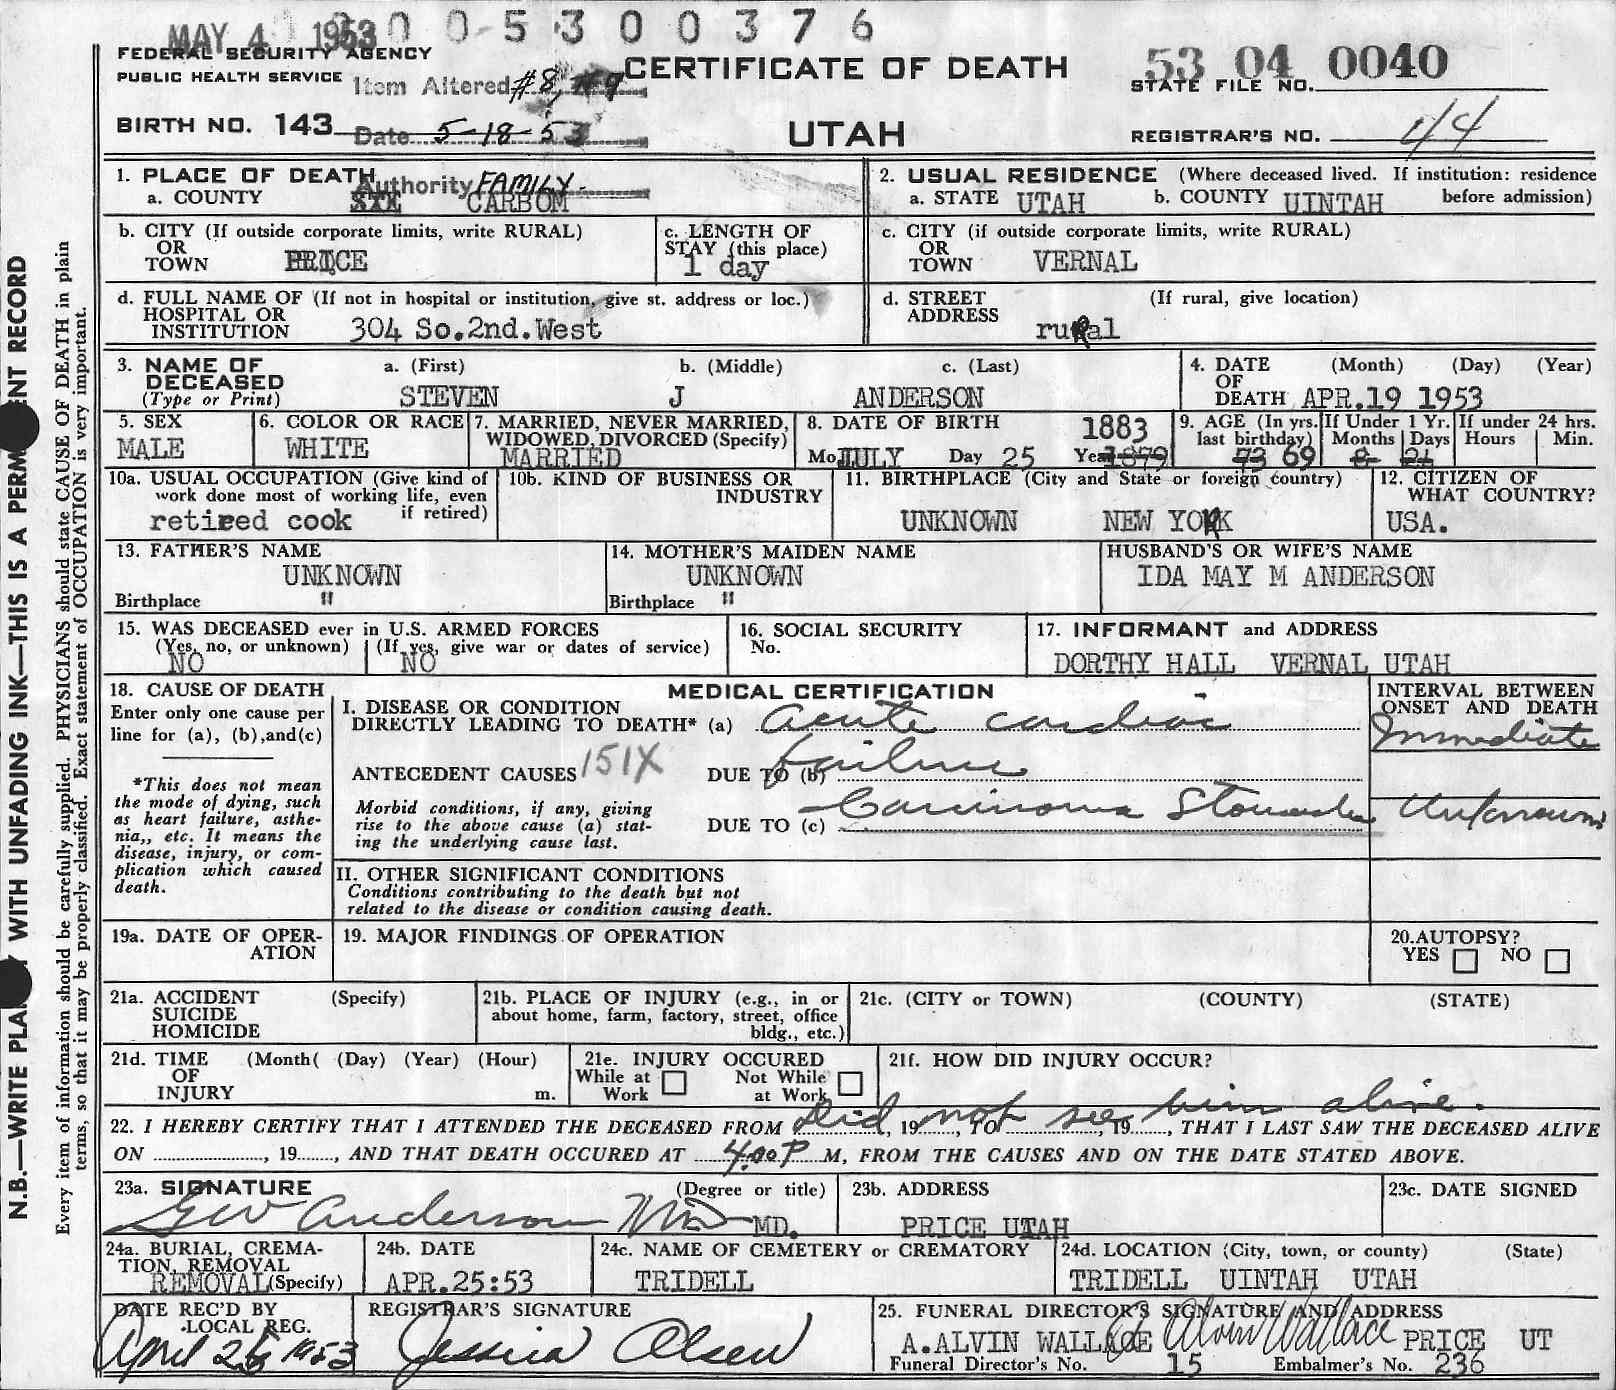 MAY 4 1953 0 0 5 3 0 0 3 7 6
FEDERAL SECURITY AGENCY
PUBLIC HEALTH SERVICE
Item Altered #8, #9
CERTIFICATE OF DEATH
53 04 0040
STATE FILE NO.
BIRTH NO. 143
Date 5-18-53
UTAH
REGISTRAR'S NO. 44
1. PLACE OF DEATH
Authority FAMILY
a. COUNTY CARBOM
2. USUAL RESIDENCE (Where deceased lived. If institution: residence before admission)
a. STATE UTAH b. COUNTY UINTAH
b. CITY (If outside corporate limits, write RURAL)
OR
TOWN PRICE
c. LENGTH OF
STAY (this place)
1 day
c. CITY (if outside corporate limits, write RURAL)
OR
TOWN VERNAL
d. FULL NAME OF (If not in hospital or institution, give st. address or loc.)
HOSPITAL OR
INSTITUTION 304 So.2nd.West
d. STREET (If rural, give location)
ADDRESS
ruRal
3. NAME OF DECEASED
(Type or Print)
a. (First) b. (Middle) c. (Last)
STEVEN J ANDERSON
4. DATE (Month) (Day) (Year)
OF
DEATH APR.19 1953
5. SEX
MALE
6. COLOR OR RACE
WHITE
7. MARRIED, NEVER MARRIED,
WIDOWED, DIVORCED (Specify)
MARRIED
8. DATE OF BIRTH 1883
Mo. JULY Day 25 Year 1879
9. AGE (In yrs. last birthday) If Under 1 Yr. If under 24 hrs.
Months Days Hours Min.
73 69 8 21
10a. USUAL OCCUPATION (Give kind of
work done most of working life, even
if retired)
retired cook
10b. KIND OF BUSINESS OR
INDUSTRY
11. BIRTHPLACE (City and State or foreign country)
UNKNOWN NEW YORK
12. CITIZEN OF
WHAT COUNTRY?
USA.
13. FATHER'S NAME
UNKNOWN
Birthplace "
14. MOTHER'S MAIDEN NAME
UNKNOWN
Birthplace "
HUSBAND'S OR WIFE'S NAME
IDA MAY M ANDERSON
15. WAS DECEASED ever in U.S. ARMED FORCES
(Yes, no, or unknown) (If yes, give war or dates of service)
NO NO
16. SOCIAL SECURITY
No.
17. INFORMANT and ADDRESS
DORTHY HALL VERNAL UTAH
18. CAUSE OF DEATH
Enter only one cause per
line for (a), (b),and(c)
*This does not mean
the mode of dying, such
as heart failure, asthe-
nia,, etc. It means the
disease, injury, or com-
plication which caused
death.
MEDICAL CERTIFICATION
I. DISEASE OR CONDITION
DIRECTLY LEADING TO DEATH* (a) acute cardiac
ANTECEDENT CAUSES 151X DUE TO (b) failure
Morbid conditions, if any, giving
rise to the above cause (a) stat-
ing the underlying cause last.
DUE TO (c) Carcinoma Stomach
INTERVAL BETWEEN
ONSET AND DEATH
Immediate
Unknown
II. OTHER SIGNIFICANT CONDITIONS
Conditions contributing to the death but not
related to the disease or condition causing death.
19a. DATE OF OPER-
ATION
19. MAJOR FINDINGS OF OPERATION
20.AUTOPSY?
YES NO
21a. ACCIDENT (Specify)
SUICIDE
HOMICIDE
21b. PLACE OF INJURY (e.g., in or
about home, farm, factory, street, office
bldg., etc.)
21c. (CITY or TOWN) (COUNTY) (STATE)
21d. TIME (Month( (Day) (Year) (Hour)
OF
INJURY m.
21e. INJURY OCCURED
While at Work Not While at Work
21f. HOW DID INJURY OCCUR?
Did not see him alive.
22. I HEREBY CERTIFY THAT I ATTENDED THE DECEASED FROM , 19 , TO , 19 , THAT I LAST SAW THE DECEASED ALIVE
ON , 19 , AND THAT DEATH OCCURED AT 4:00 P M, FROM THE CAUSES AND ON THE DATE STATED ABOVE.
23a. SIGNATURE (Degree or title)
GW Anderson MD MD.
23b. ADDRESS
PRICE UTAH
23c. DATE SIGNED
24a. BURIAL, CREMA-
TION, REMOVAL
REMOVAL (Specify)
24b. DATE
APR.25:53
24c. NAME OF CEMETERY or CREMATORY
TRIDELL
24d. LOCATION (City, town, or county) (State)
TRIDELL UINTAH UTAH
DATE REC'D BY
LOCAL REG.
April 1953
REGISTRAR'S SIGNATURE
Jessica Olsen
25. FUNERAL DIRECTOR'S SIGNATURE AND ADDRESS
A.ALVIN WALLACE Alvin Wallace PRICE UT
Funeral Director's No. 15 Embalmer's No. 236
N.B.—WRITE WITH UNFADING INK—THIS IS A RECORD
Every item of information should be carefully supplied. PHYSICIANS should state CAUSE OF DEATH in plain
terms, so that it may be properly classified. Exact statement of OCCUPATION is very important.